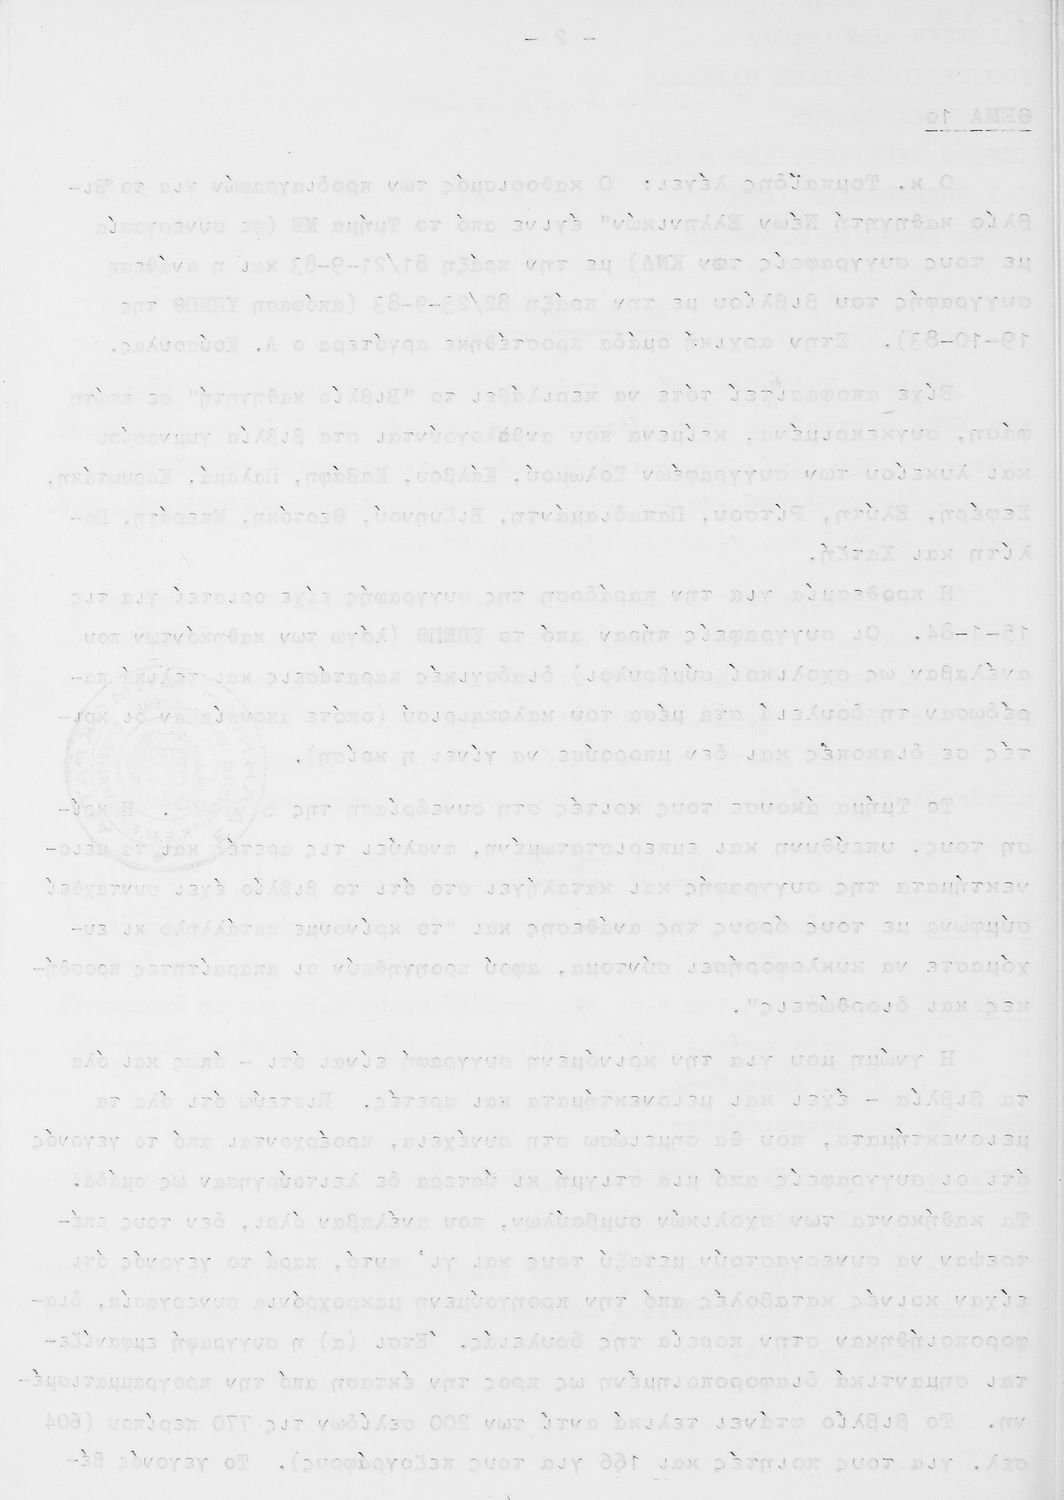 - 2 -
ΘΕΜΑ 1ο
Ο κ. Τομπαΐδης λέγει: Ο καθορισμός των προδιαγραφών για το "Βι-
βλίο καθηγητή Νέων Ελληνικών" έγινε από το Τμήμα ΜΕ (σε συνεργασία
με τους συγγραφείς των ΚΝΛ) με την πράξη 81/21-9-83 και η ανάθεση
συγγραφής του βιβλίου με την πράξη 82/23-9-83 (απόφαση ΥΠΕΠΘ της
19-10-83). Στην αρχική ομάδα προστέθηκε αργότερα ο Λ. Κούσουλας.
Είχε αποφασιτεί τότε να περιλάβει το "Βιβλίο καθηγητή" σε πρώτη
φάση, συγκεκριμένα, κείμενα που ανθολογούνται στα βιβλία γυμνασίου
και λυκείου των συγγραφέων Σολωμού, Κάλβου, Καβάφη, Παλαμά, Καρυωτάκη,
Σεφέρη, Ελύτη, Ρίτσου, Παπαδιαμάντη, Βιζυηνού, Θεοτόκη, Μπεράτη, Πο-
λίτη και Χατζή.
Η προθεσμία για την παράδοση της συγγραφής είχε οριστεί για τις
15-1-84. Οι συγγραφείς πήραν από το ΥΠΕΠΘ (λόγω των καθηκόντων που
ανέλαβαν ως σχολικοί σύμβουλοι) διαδοχικές παρατάσεις και τελικά πα-
ρέδωσαν τη δουλειά στα μέσα του καλοκαιριού (οπότε απουσίαζαν οι κρι-
τές σε διακοπές και δεν μπορούσε να γίνει η κρίση).
Το Τμήμα άκουσε τους κριτές στη συνεδρίαση της . Η κρί-
ση τους, υπεύθυνη και εμπεριστατωμένη, αναλύει τις αρετές και τα μειο-
νεκτήματα της συγγραφής και καταλήγει στο ότι το βιβλίο έχει συνταχθεί
σύμφωνα με τους όρους της ανάθεσης και "το κρίνουμε κατάλληλο κι ευ-
χόμαστε να κυκλοφορήσει σύντομα, αφού προηγηθούν οι απαραίτητες προσθή-
κες και διορθώσεις".
Η γνώμη μου για την κρινόμενη συγγραφή είναι ότι - όπως και όλα
τα βιβλία - έχει και μειονεκτήματα και αρετές. Πιστεύω ότι όλα τα
μειονεκτήματα, που θα σημειώσω στη συνέχεια, προέρχονται από το γεγονός
ότι οι συγγραφείς από μια στιγμή κι ύστερα δε λειτούργησαν ως ομάδα.
Τα καθήκοντα των σχολικών συμβούλων, που ανέλαβαν όλοι, δεν τους επέ-
τρεψαν να συνεργαστούν μεταξύ τους και γι' αυτό, παρά το γεγονός ότι
είχαν κοινές καταβολές από την προηγούμενη μακροχρόνια συνεργασία, δια-
φοροποιήθηκαν στην πορεία της δουλειάς. Έτσι (α) η συγγραφή εμφανίζε-
ται σημαντικά διαφοροποιημένη ως προς την έκταση από την προγραμματισμέ-
νη. Το βιβλίο φτάνει τελικά αντί των 200 σελίδων τις 770 περίπου (604
σελ. για τους ποιητές και 166 για τους πεζογράφους). Το γεγονός βέ-